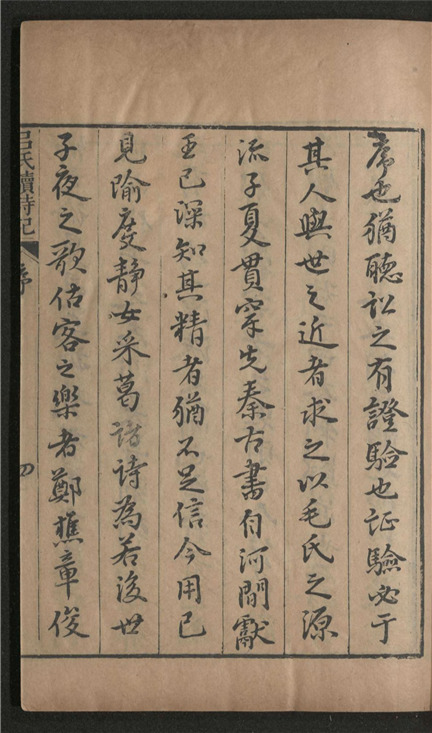 序也猶聽訟之有證驗也証驗必于
其人與世之近者求之以毛氏之源
流子夏貫穿先秦古書自河間獻
王已深知其精者猶不足信今用已
見隃度靜女采葛諸詩為若後世
子夜之歌估客之樂者鄭樵章俊
呂氏讀詩記 序 四